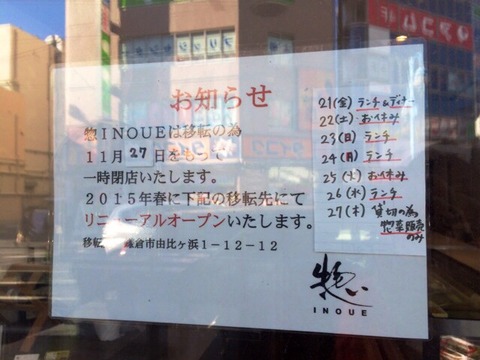 お知らせ
惣INOUEは移転の為
11月27日をもって
一時閉店いたします。
2015年春に下記の移転先にて
リニューアルオープンいたします。
移転 鎌倉市由比ヶ浜1-12-12
21(金) ランチ&ディナー
22(土) お休み
23(日) ランチ
24(月) ランチ
25(火) お休み
26(水) ランチ
27(木) 貸切の為
惣菜販売
のみ
惣
INOUE